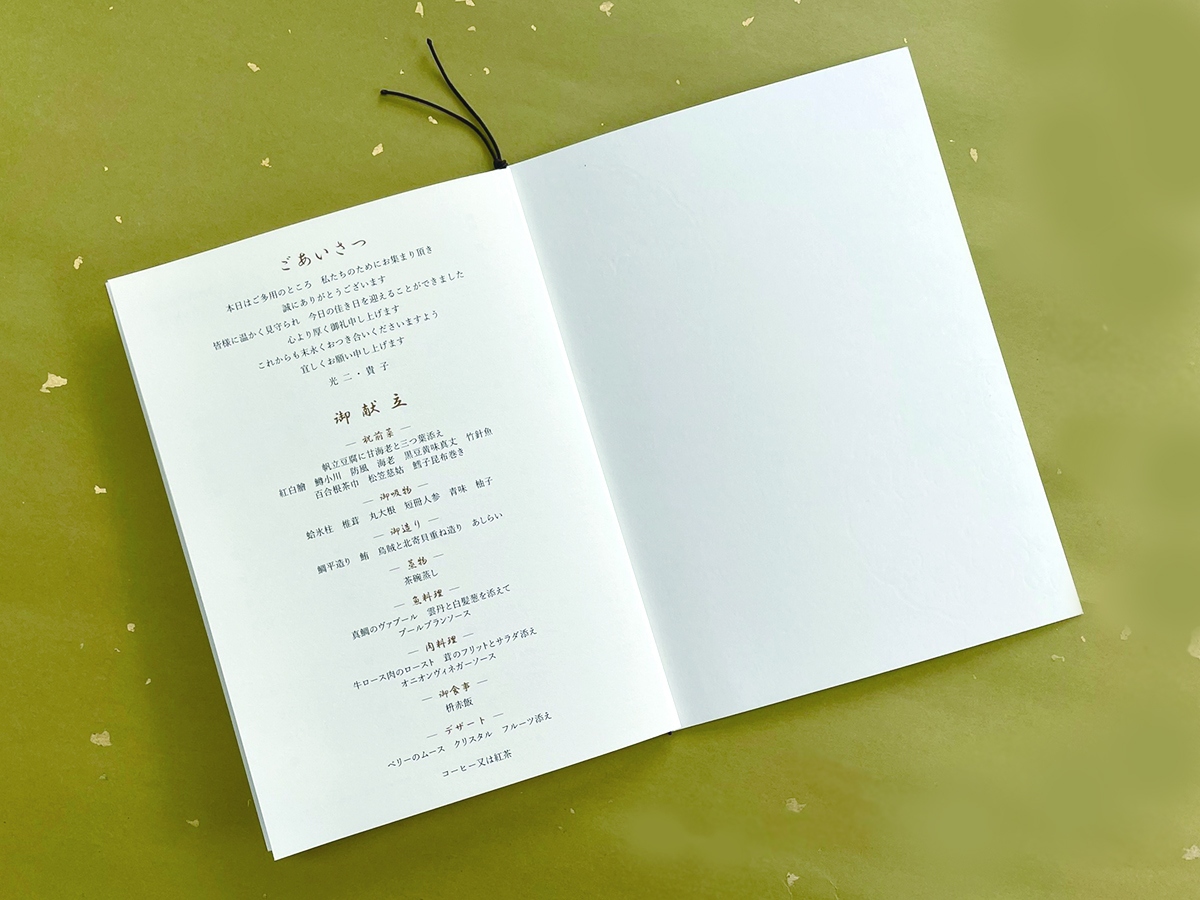 ごあいさつ
本日はご多用のところ　私たちのためにお集まり頂き
誠にありがとうございます
皆様に温かく見守られ　今日の佳き日を迎えることができました
心より厚く御礼申し上げます
これからも末永くおつき合いくださいますよう
宜しくお願い申し上げます
光二・貴子
御献立
― 祝前菜 ―
帆立豆腐に甘海老と三つ葉添え
紅白膾　鱒小川　防風　海老　黒豆黄味真丈　竹針魚
百合根茶巾　松笠慈姑　鱈子昆布巻き
― 御吸物 ―
蛤氷柱　椎茸　丸大根　短冊人参　青味　柚子
― 御造り ―
鯛平造り　鮪　烏賊と北寄貝重ね造り　あしらい
― 蒸物 ―
茶碗蒸し
― 魚料理 ―
真鯛のヴァプール　雲丹と白髪葱を添えて
ブールブランソース
― 肉料理 ―
牛ロース肉のロースト　茸のフリットとサラダ添え
オニオンヴィネガーソース
― 御食事 ―
枡赤飯
― デザート ―
ベリーのムース　クリスタル　フルーツ添え
コーヒー又は紅茶